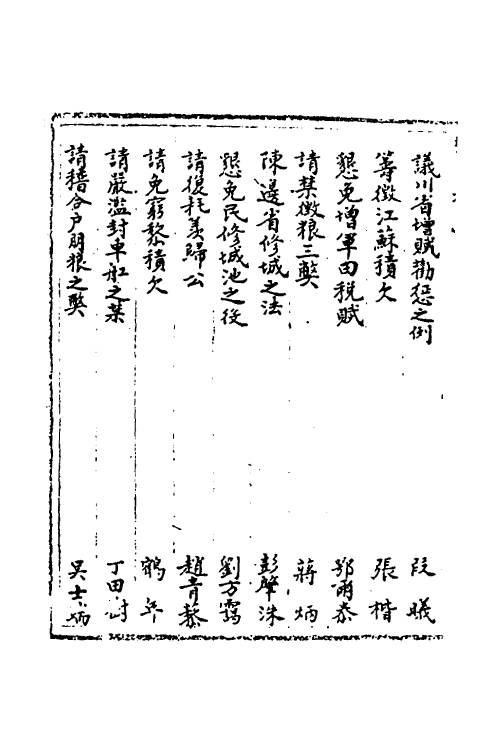 議川省增賦勸懲之例 段曦
籌徵江蘇積欠 張楷
懇免增軍田稅賦 鄂爾泰
請禁徵粮三弊 蔣炳
陳邊省修城之法 彭肇洙
懇免民修城池之役 劉方靄
請復耗羨歸公 趙青藜
請免窮黎積欠 鶴年
請嚴濫封車船之禁 丁田澍
請稽合户朋粮之弊 吳士